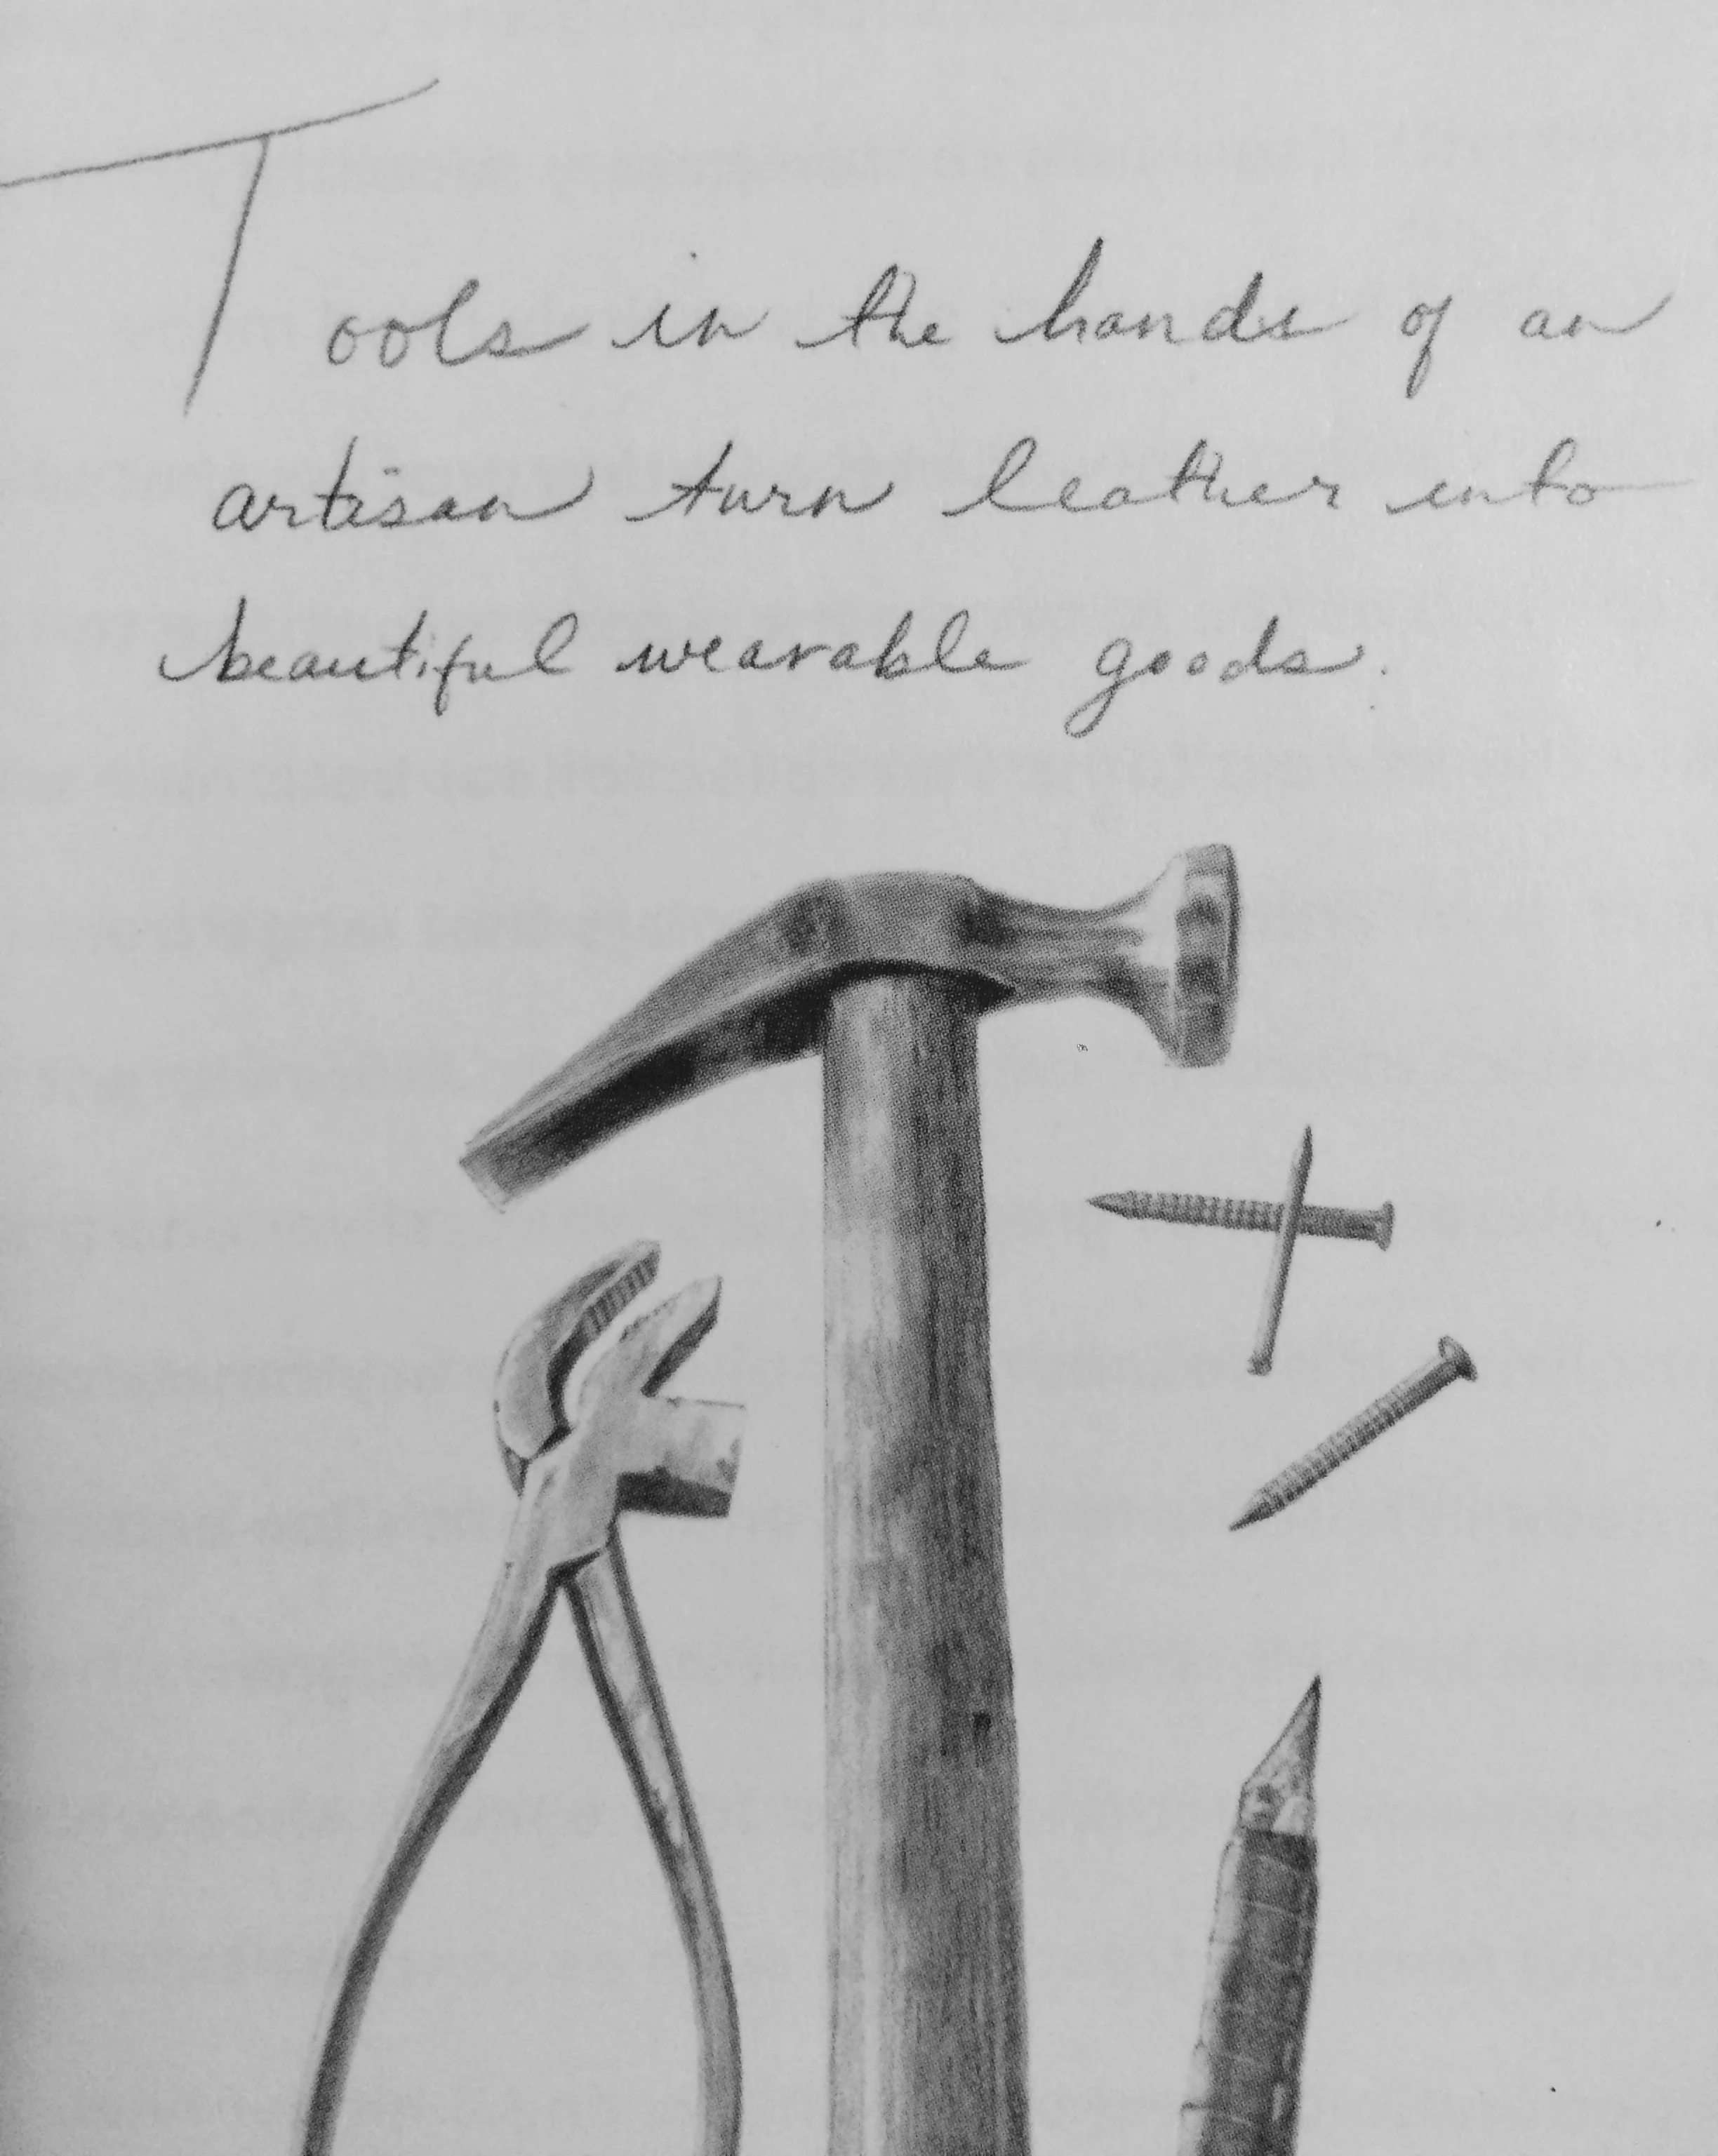 Tools in the hands of an
artisan turn leather into
beautiful wearable goods.